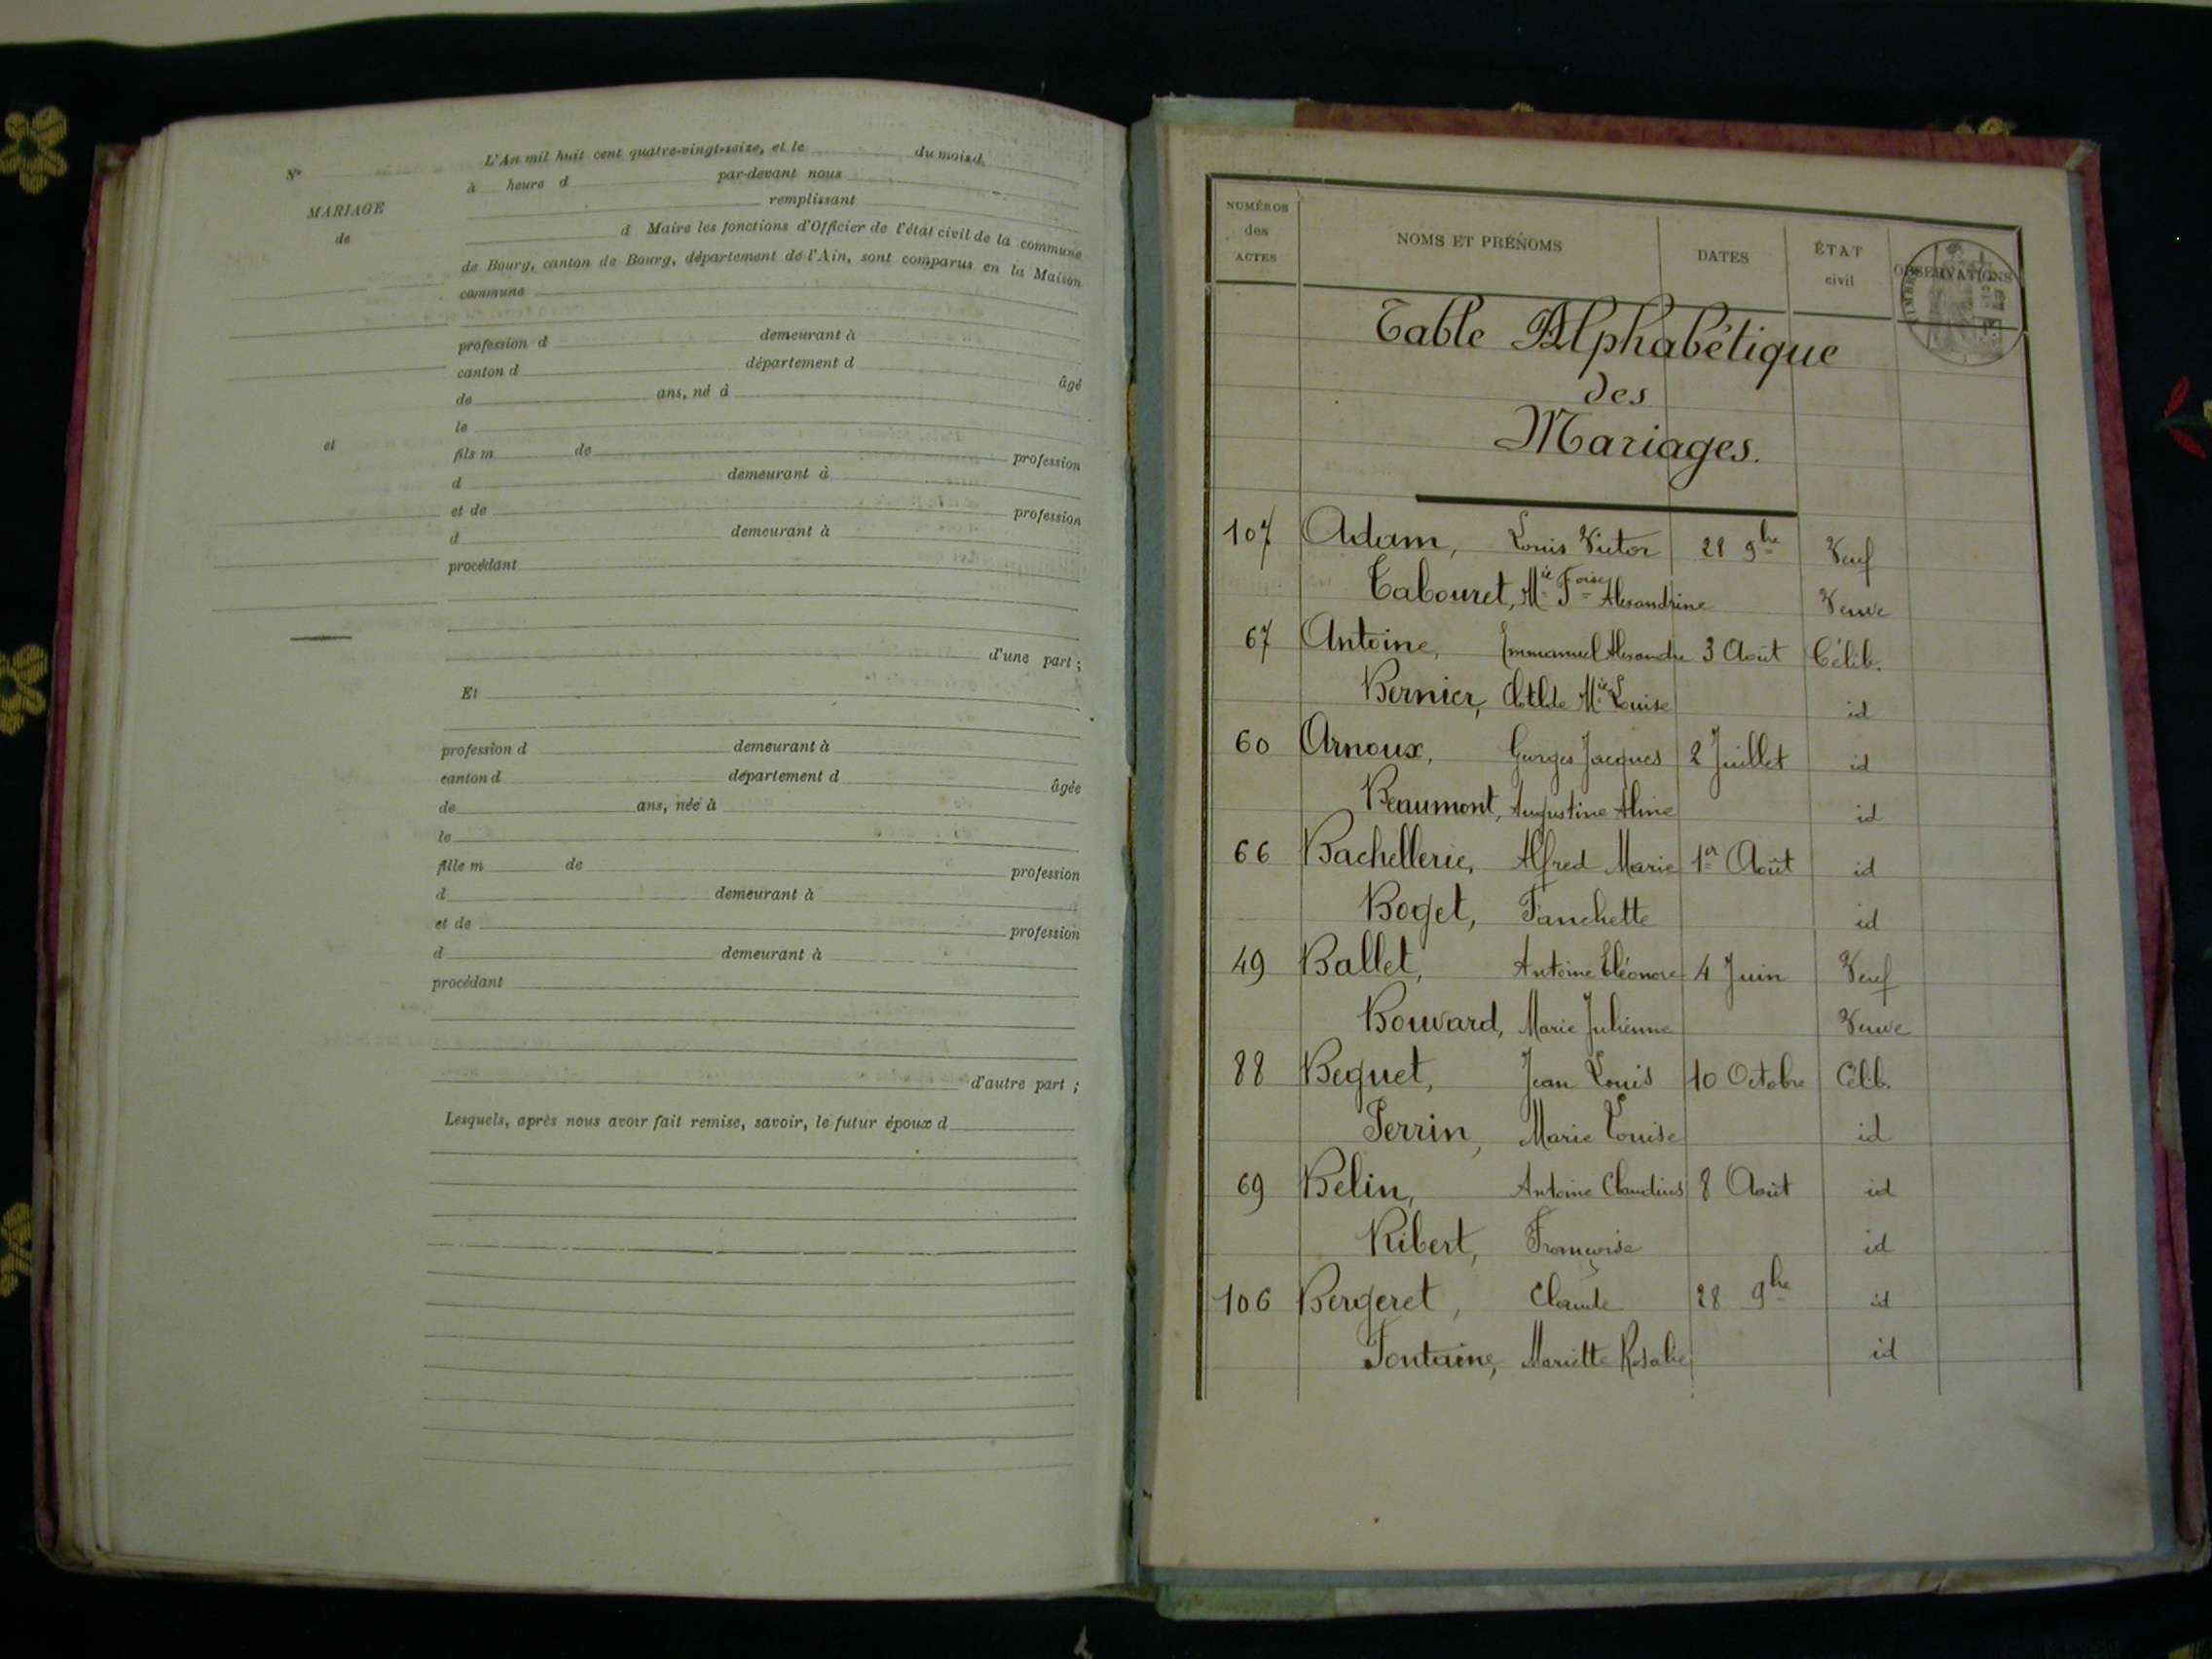 N°
MARIAGE
de
et
L'An mil huit cent quatre-vingt-seize, et le du mois d
à heure d par-devant nous
remplissant
d Maire les fonctions d'Officier de l'état civil de la commune
de Bourg, canton de Bourg, département de l'Ain, sont comparus en la Maison
commune
profession d demeurant à
canton d département d âgé
de ans, né à
le
fils m de profession
d demeurant à
et de profession
d demeurant à
procédant
d'une part ;
Et
profession d demeurant à
canton d département d âgée
de ans, née à
le
fille m de profession
d demeurant à
et de profession
d demeurant à
procédant
d'autre part ;
Lesquels, après nous avoir fait remise, savoir, le futur époux d
NUMÉROS des ACTES NOMS ET PRÉNOMS DATES ÉTAT civil OBSERVATIONS
Table Alphabétique
des
Mariages.
107 Adam, Louis Victor 28 9bre Veuf
Tabouret, Mie Foise Alexandrine Veuve
67 Antoine, Emmanuel Alexandre 3 Août Célib.
Bernier, Clotilde Mie Louise id
60 Arnoux, Georges Jacques 2 Juillet id
Beaumont, Augustine Aline id
66 Bachellerie, Alfred Marie 1er Août id
Boget, Fanchette id
49 Ballet, Antoine Eléonore 4 Juin Veuf
Bouvard, Marie Julienne Veuve
88 Beguet, Jean Louis 10 Octobre Célib.
Perrin, Marie Louise id
69 Belin, Antoine Claudius 8 Août id
Ribert, Françoise id
106 Bergeret, Claude 28 9bre id
Fontaine, Mariette Rosalie id